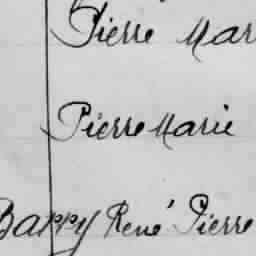 Pierre Mar
Pierre Marie
Barry René Pierre